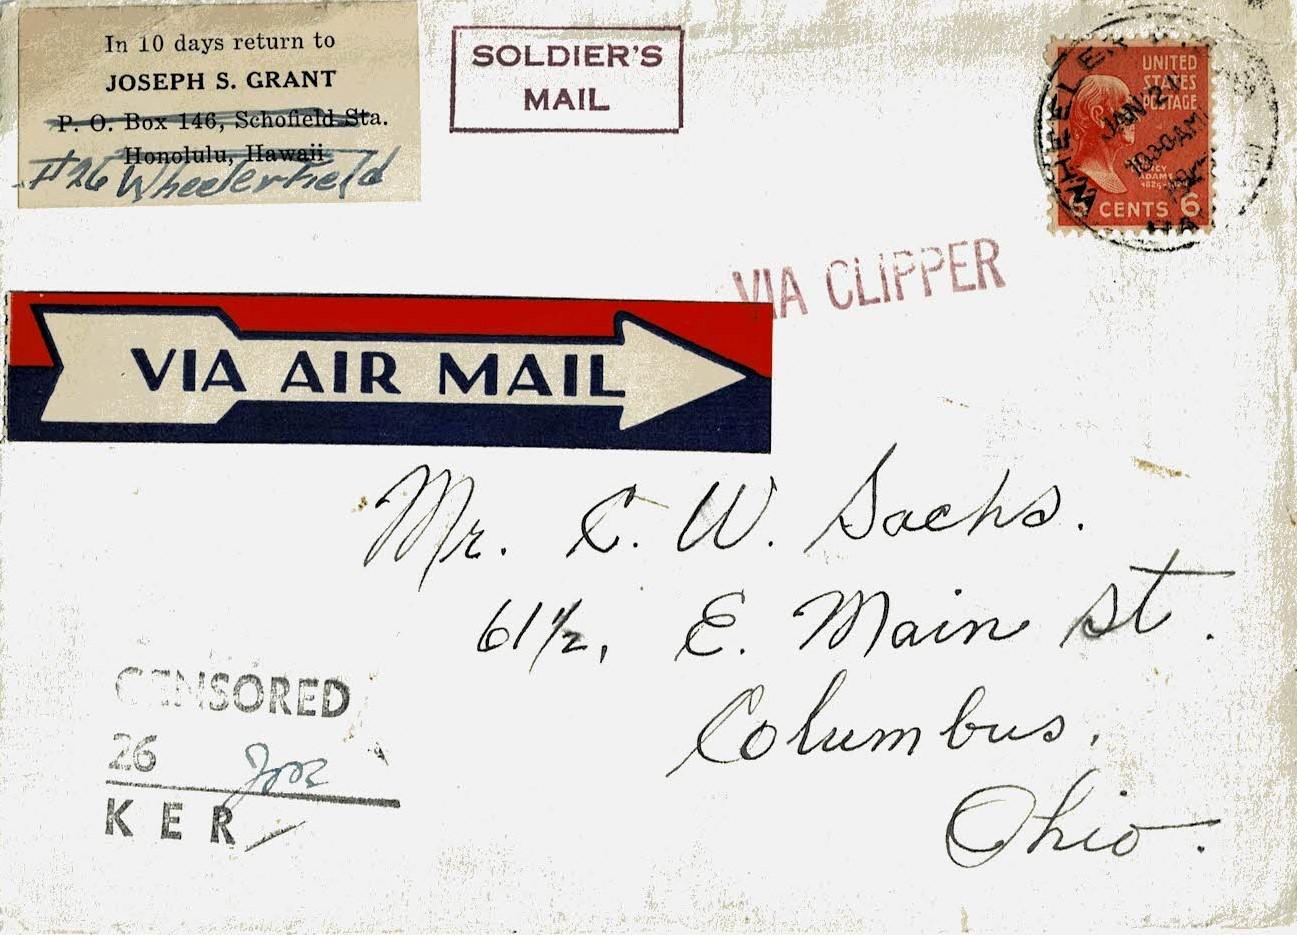 In 10 days return to
JOSEPH S. GRANT
P. O. Box 146, Schofield Sta.
Honolulu, Hawaii
#26 Wheelerfield
SOLDIER'S
MAIL
UNITED
STATES
POSTAGE
ADAMS
6 CENTS 6
WHEELER
JAN 2
1030AM
HA
VIA CLIPPER
VIA AIR MAIL
Mr. C. W. Sachs.
61½, E. Main St.
Columbus,
Ohio.
CENSORED
26
KER